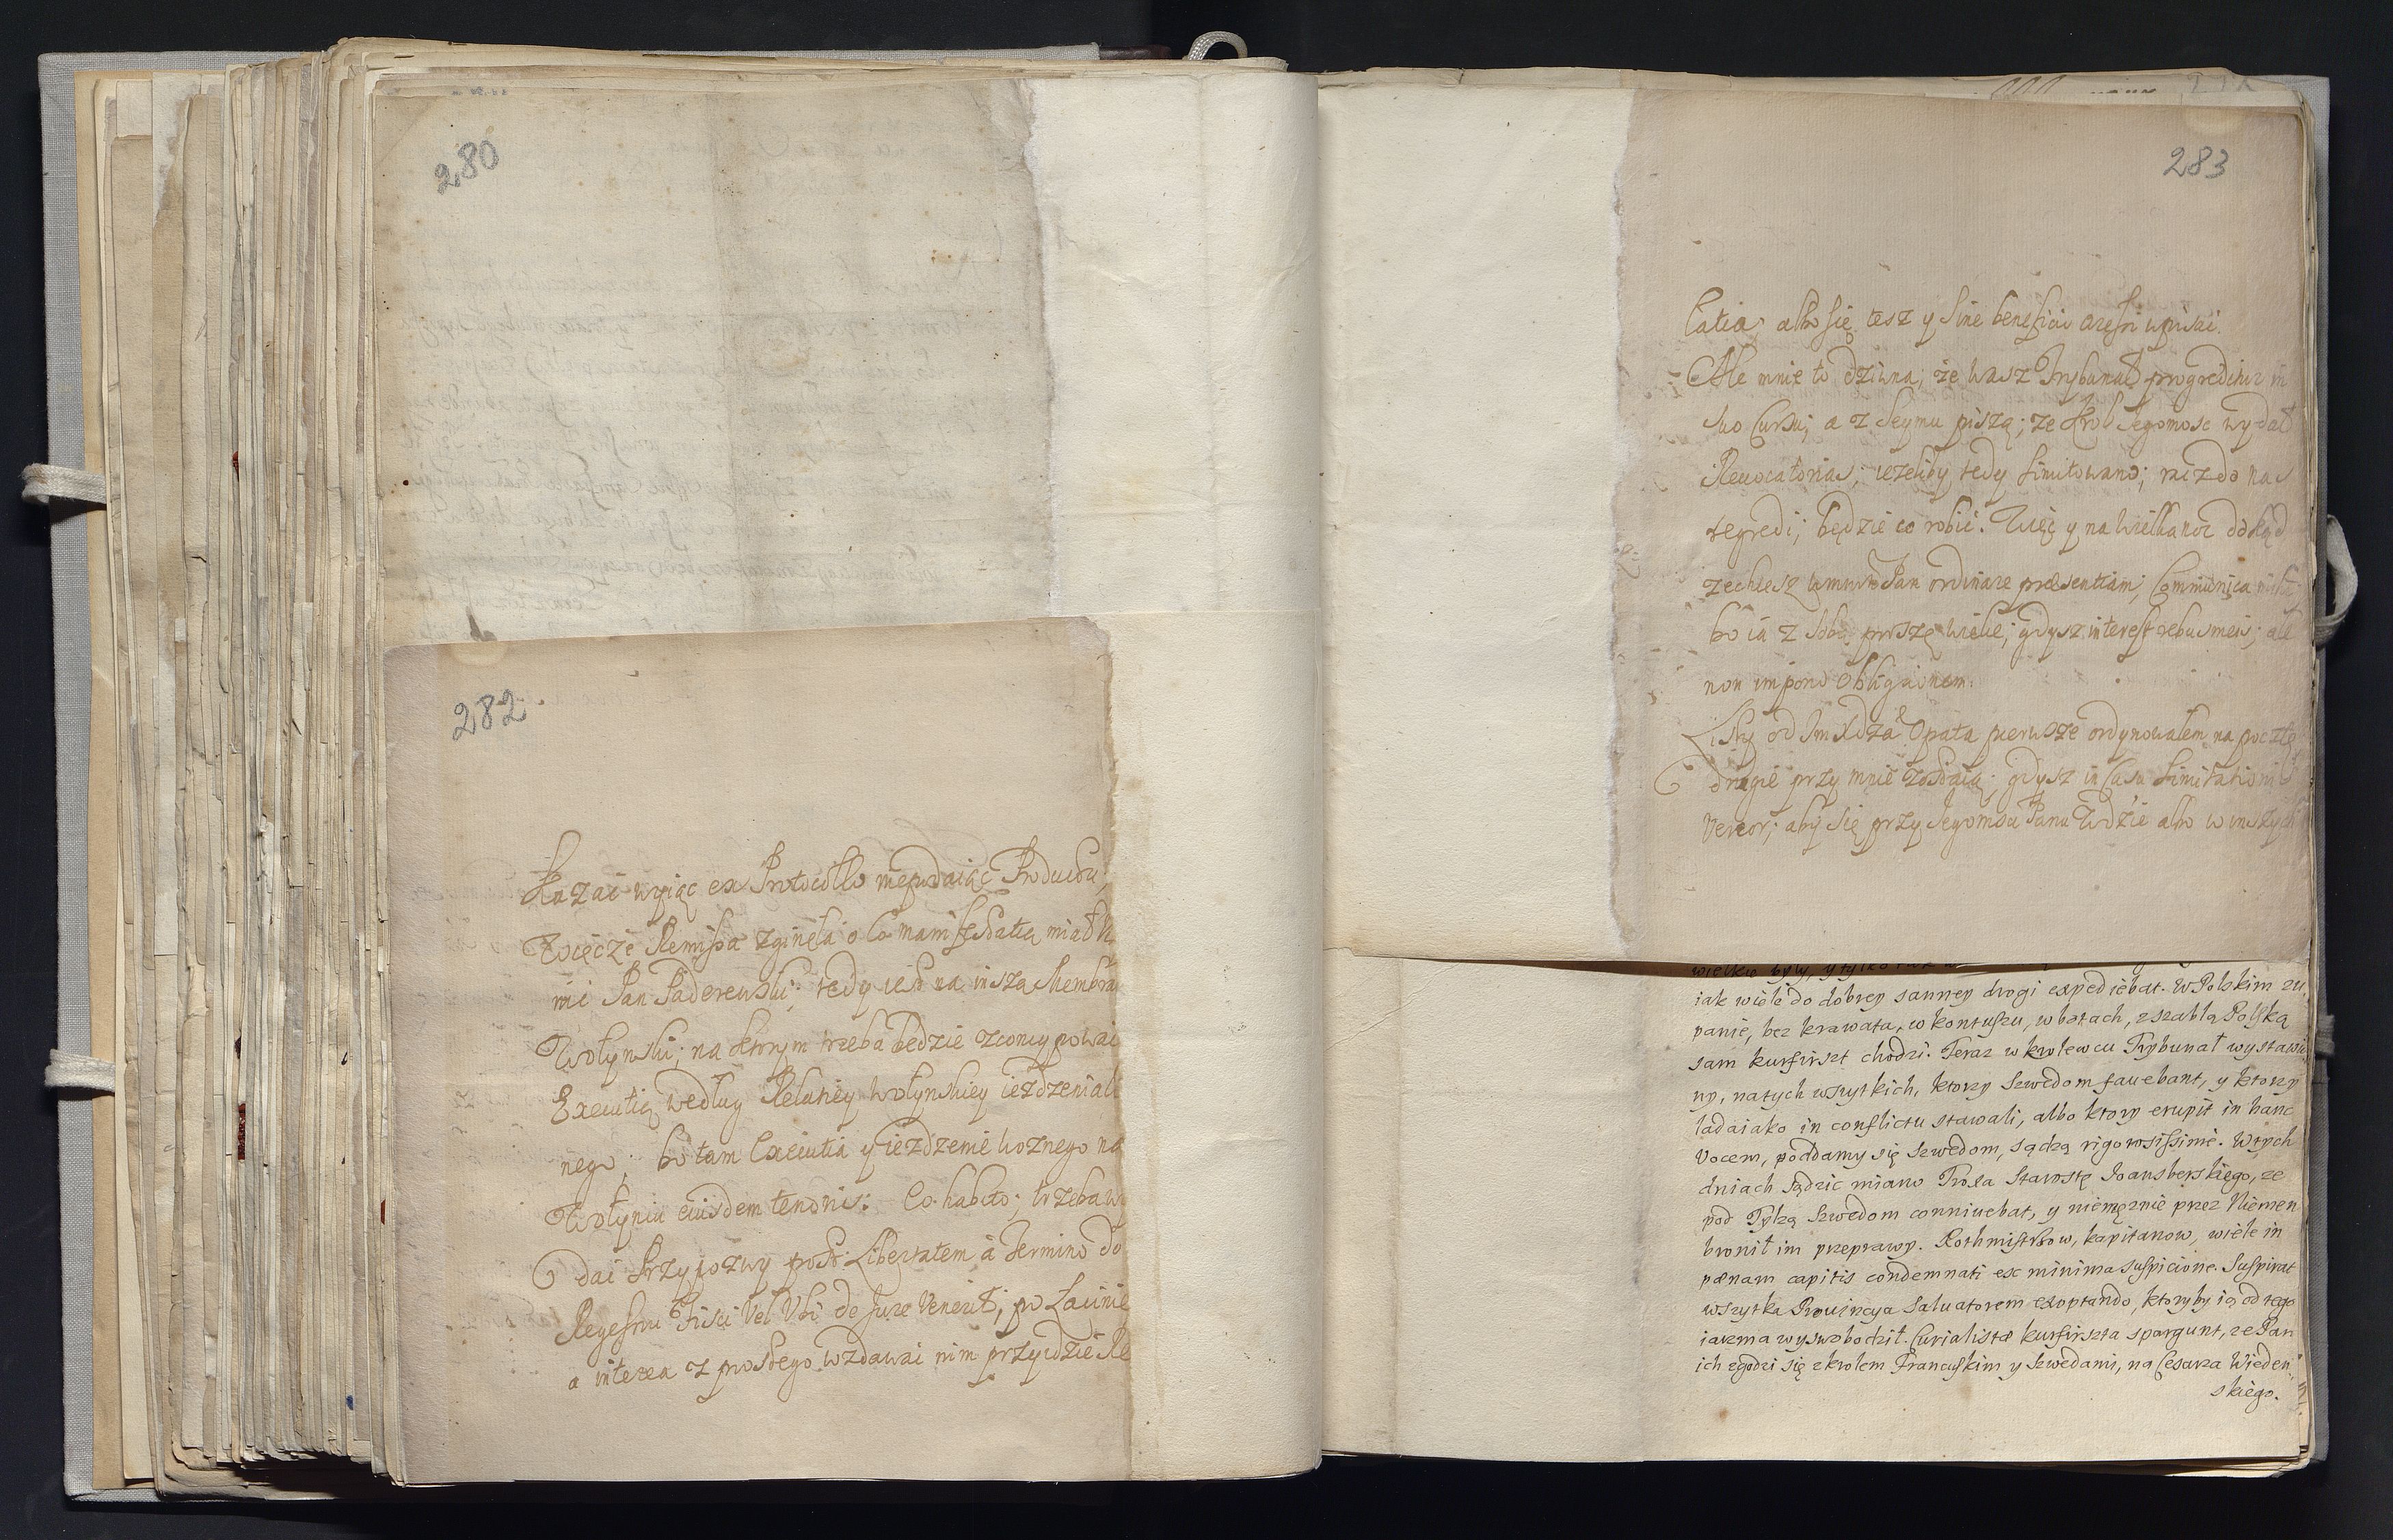 280
282
Kazać wyiąc ex Protocollo
Remissa zginęła o Co manifestatią miał
mi Pan Paderewski; tedy iest na insza Membran
Wołynski; na ktorym trzeba będzie
Executią według Relatiey Wołynskiey ieżdzenia
nego; bo tam Executia y ieżdzenie woznego na
Wołyniu eiusdem tenoris: Co habito; trzeba
dai Przypozwy post Libertatem à Termino do
Regestru Fisci vel Ubi de Jure Venerit; po
a interea z prostego wzdawai nim przyidzie Re
283
latia; albo się tesz y Sine beneficio aresti
Ale mnie to dziwna, że wasz Trybunał progreditur in
suo Cursu; a z Seymu piszą; że Krol Jegomosc wydał
Revocatorias; ieżeliby tedy limitowano; racz do nas
regredi; będzie co robic. Więc y na Wielkanoc dokąd
zechcesz Pan ordinare praesentiam; Communica mihi
bo ia z sobą proszę wielie; gdysz interest rebus meis; ale
non impono Obligationem.
Listy od Opata pierwsze ordynowałem na pocztę
drugie przy mnie zostaią; gdysz in Casu Limitationis
Vereor; aby się przy Jegomsci Panu albo w inszych
wielkie były, y tylko
iak wiele do dobrey sanney drogi expediebat. W Polskim zu
panie, bez krawata, w kontuszu, w botach, z szablą Polską
sam kurfirszt chodzi. Teraz w krolewcu Trybunał wystawio
ny, na tych wszytkich, ktorzy Szwedom fauebant, y ktorzy
ladaiako in conflictu stawali, albo ktory erupit in hanc
Vocem, poddamy się Szwedom, sądzą rigorosissimè. W tych
dniach sądzic miano Starostę Joansberskiego, ze
pod Tylzą Szwedom conniuebat, y niemęznie przez Niemen
bronił im przeprawy. Rothmistrzow, kapitanow, wiele in
pœnam capitis condemnati ex minima suspicione. Suspirat
wszytka Prouincya Saluatorem exoptando, ktoryby ią od tego
iarzma wyswobodził. Curialistæ kurfirszta spargunt, ze Pan
ich zgodzi się z krolem Francuskim y Szwedami, na Cesarza Wieden
skiego.